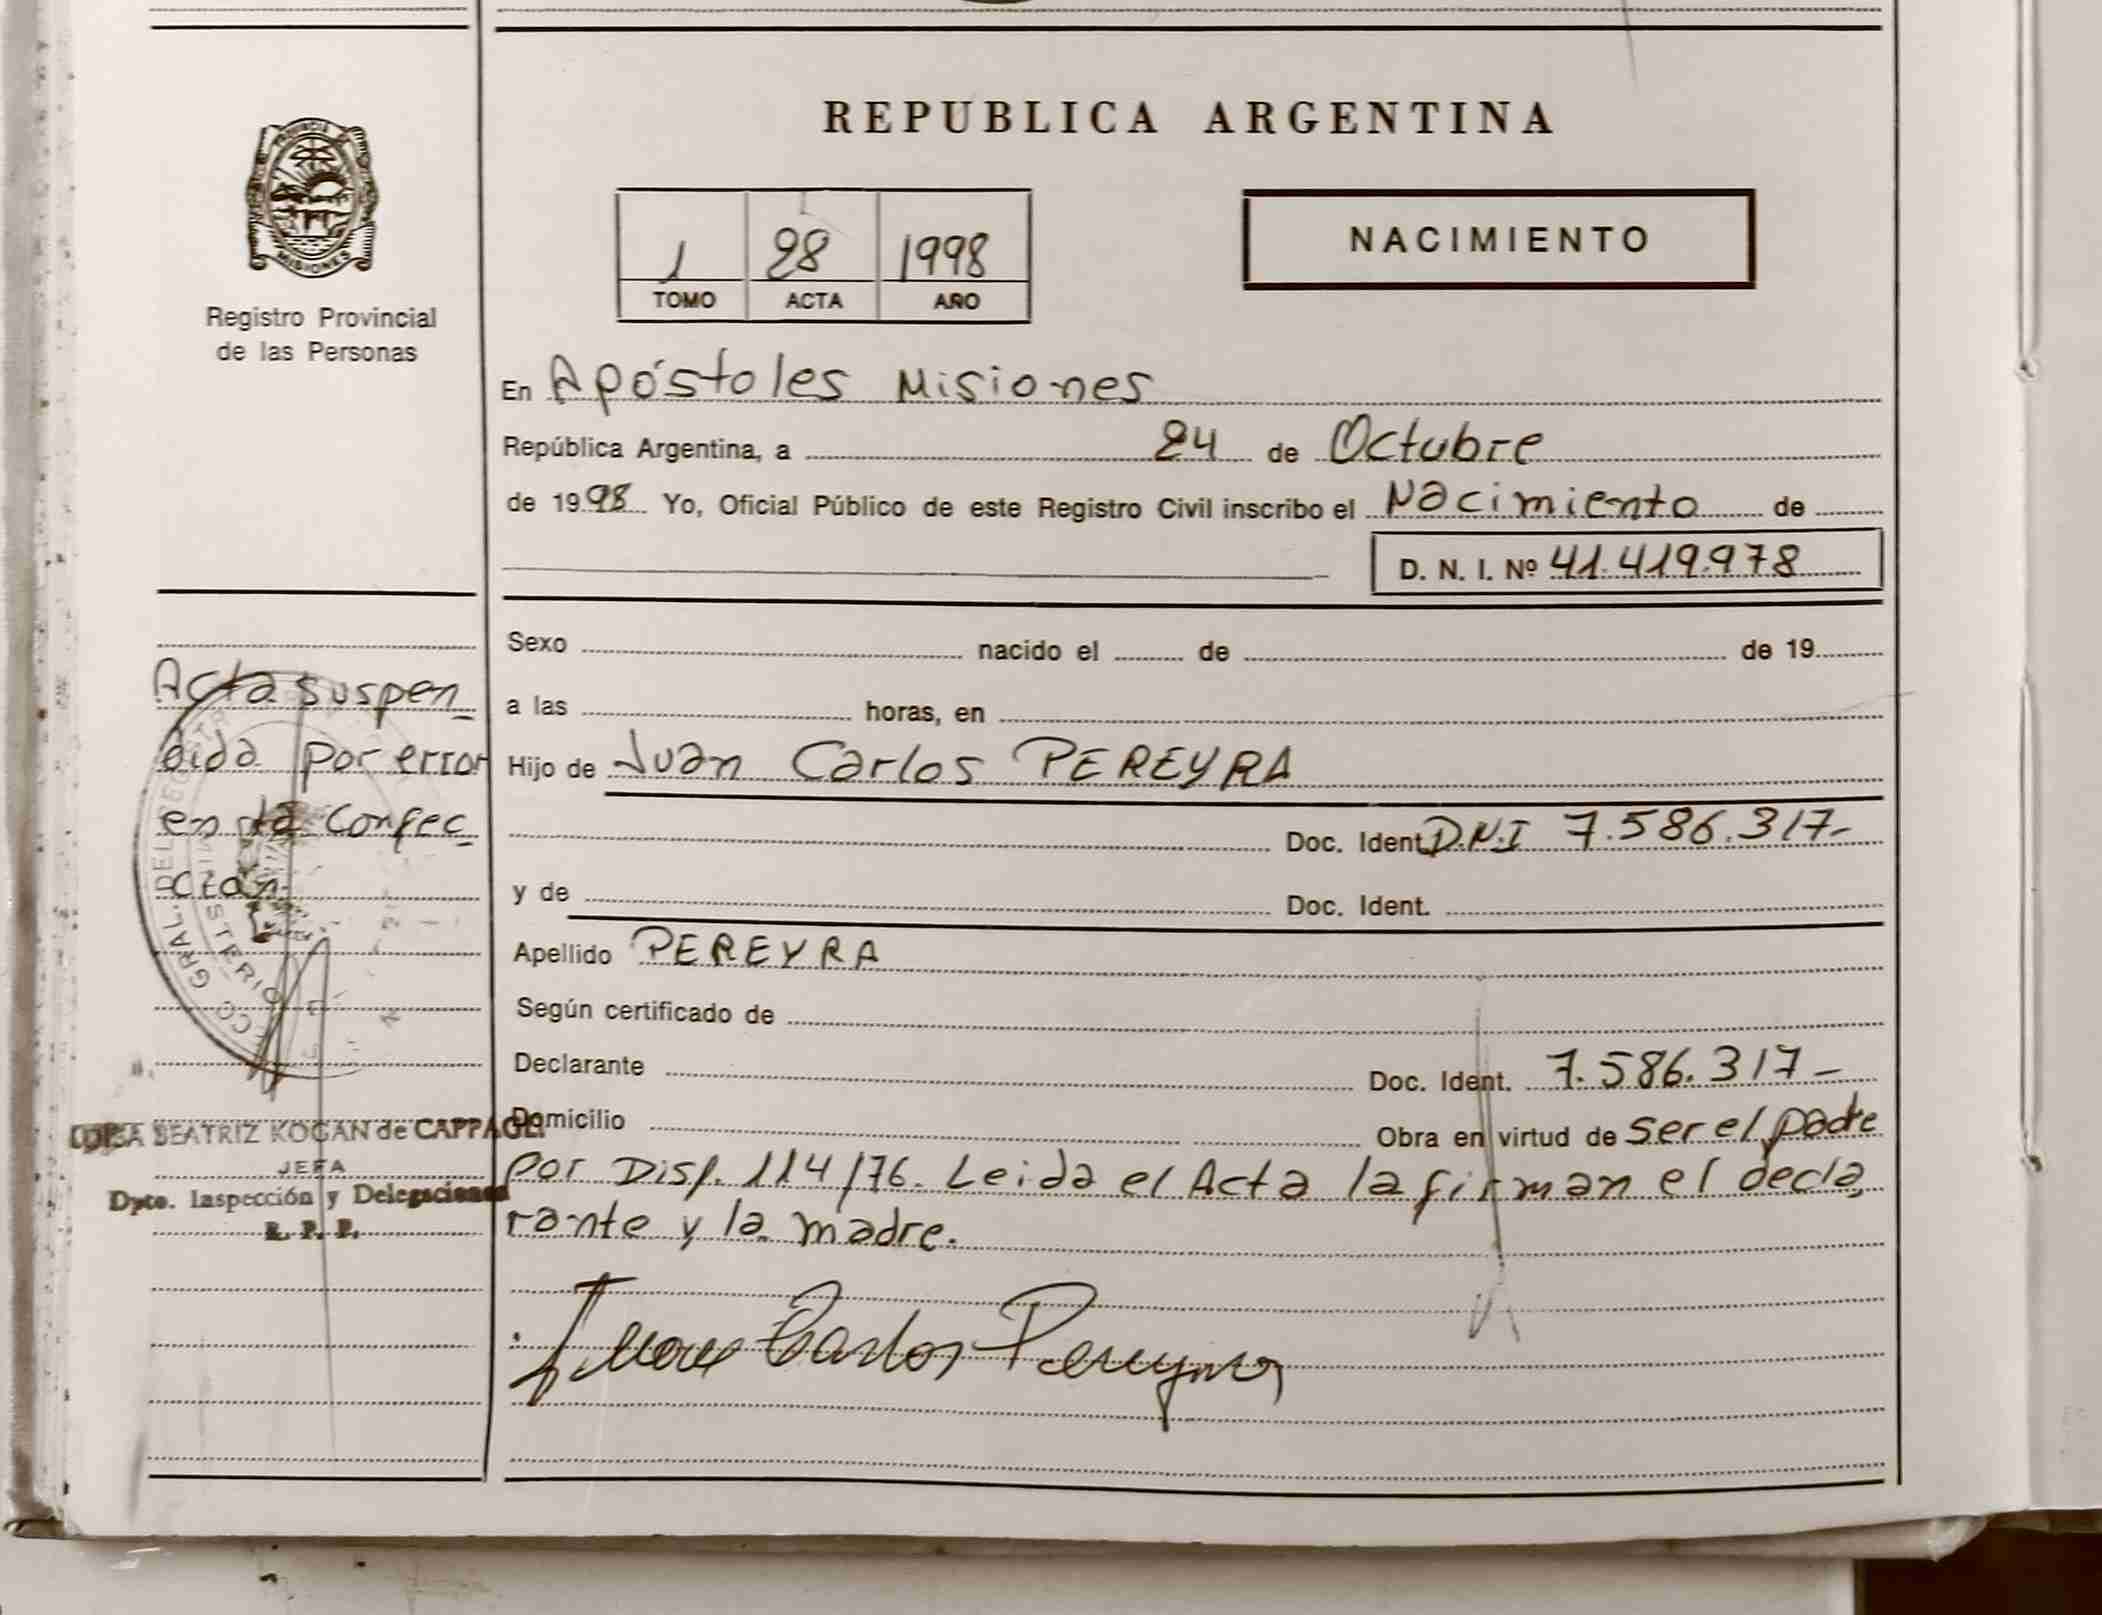 REPUBLICA ARGENTINA
PROVINCIA DE
MISIONES
Registro Provincial
de las Personas
1 28 1998
TOMO ACTA AÑO
NACIMIENTO
En Apóstoles Misiones
República Argentina, a 24 de Octubre
de 1998 Yo, Oficial Público de este Registro Civil inscribo el Nacimiento de
D. N. I. Nº 41.419.978
Sexo nacido el de de 19
a las horas, en
Hijo de Juan Carlos PEREYRA
Doc. Ident. D.N.I 7.586.317-
y de Doc. Ident.
Apellido PEREYRA
Según certificado de
Declarante Doc. Ident. 7.586.317-
Domicilio Obra en virtud de ser el padre
por Disp. 114/76. Leida el Acta la firman el decla
rante y la madre.
Juan Carlos Pereyra
Acta suspen
dida por error
en la Confec
ción
LUISA BEATRIZ KOGAN de CAPPAGLI
JEFA
Dpto. Inspección y Delegaciones
R. P. P.